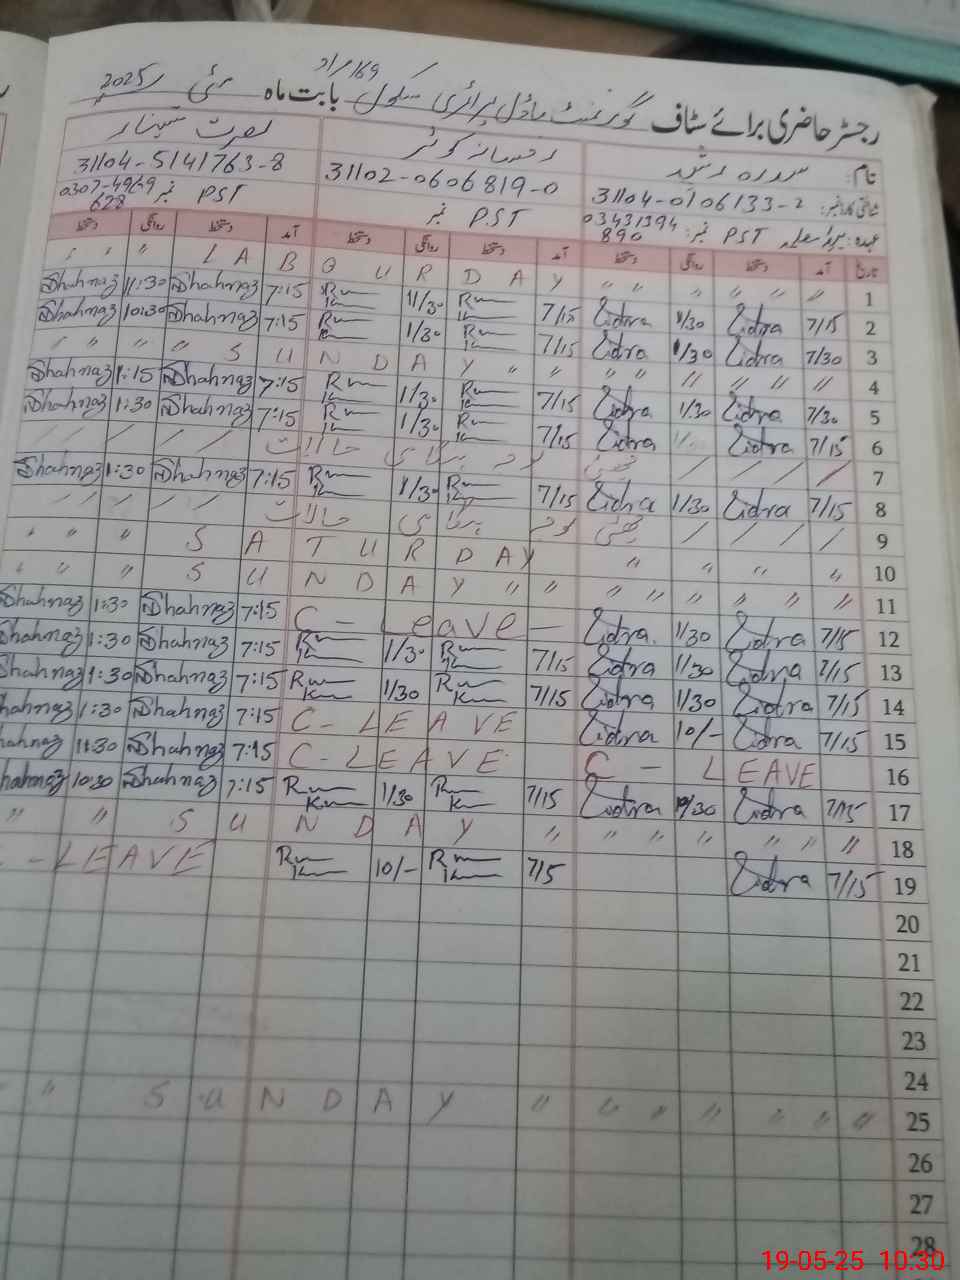 رجسٹر حاضری برائے سٹاف گورنمنٹ ماڈل پرائمری سکول 169 مراد بابت ماہ مئی 2025
نام: سدرہ رشید رخسانہ کوثر
شناختی کارڈ نمبر: 31104-0106133-2 31102-0606819-0 31104-5141763-8
عہدہ: PST نمبر 03431394890 PST نمبر PST نمبر 0307-4969628
تاریخ آمد دستخط روانگی دستخط آمد دستخط روانگی دستخط آمد دستخط روانگی دستخط
1 " " " " " " LABOUR DAY " " "
2 7/15 Sidra 1/30 Sidra 7/15 11/30 7:15 Shahnaz 11:30 Shahnaz
3 7/30 Sidra 1/30 Sidra 7/15 1/30 7:15 Shahnaz 10:30 Shahnaz
4 " " " " " " " " SUNDAY " " "
5 7/30 Sidra 1/30 Sidra 7/15 1/30 7:15 Shahnaz 1:15 Shahnaz
6 7/15 Sidra Sidra 7/15 1/30 7:15 Shahnaz 1:30 Shahnaz
7 / / / / چھٹی حالات / / / /
8 7/15 Sidra 1/30 Sidra 7/15 1/30 7:15 Shahnaz 1:30 Shahnaz
9 / / / / چھٹی حالات / / / /
10 " " " " SATURDAY " " "
11 " " " " " " " " SUNDAY " " "
12 7/15 Sidra 1/30 Sidra. C - Leave - 7:15 Shahnaz 1:30 Shahnaz
13 7/15 Sidra 1/30 Sidra 7/15 1/30 7:15 Shahnaz 1:30 Shahnaz
14 7/15 Sidra 1/30 Sidra 7/15 1/30 7:15 Shahnaz 1:30 Shahnaz
15 7/15 Sidra 10/- Sidra C- LEAVE 7:15 Shahnaz 1:30 Shahnaz
16 C - LEAVE C-LEAVE 7:15 Shahnaz 11:30 Shahnaz
17 7/15 Sidra 10/30 Sidra 7/15 1/30 7:15 Shahnaz 10:30 Shahnaz
18 " " " " " " SUNDAY " "
19 7/15 Sidra 7/5 10/- C-LEAVE
20
21
22
23
24
25 " " " " " " " SUNDAY "
26
27
28
19-05-25 10:30